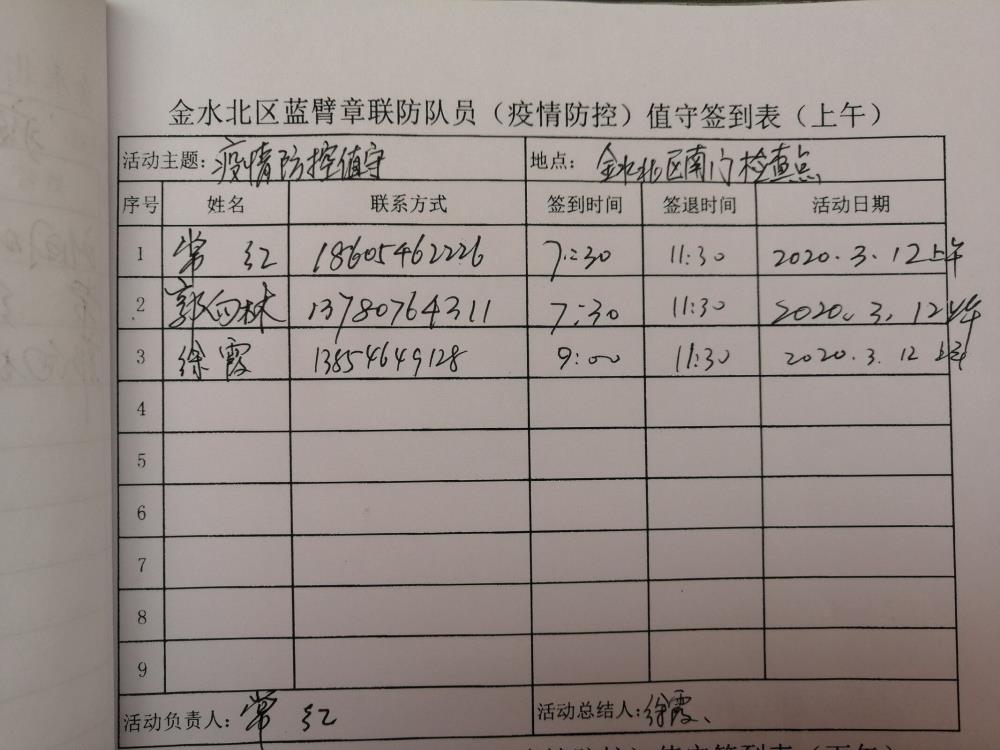 金水北区蓝臂章联防队员（疫情防控）值守签到表（上午）
活动主题：疫情防控值守 地点：金水北区南门检查点
序号 姓名 联系方式 签到时间 签退时间 活动日期
1 常红 18605462226 7:30 11:30 2020.3.12上午
2 郭向林 13780764311 7:30 11:30 2020.3.12上午
3 徐霞 13854649128 9:00 11:30 2020.3.12上午
4
5
6
7
8
9
活动负责人：常红 活动总结人：徐霞、